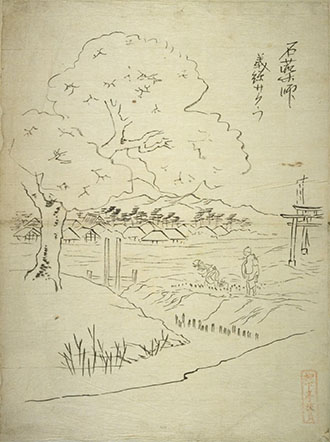 石薬師
義経サクラ